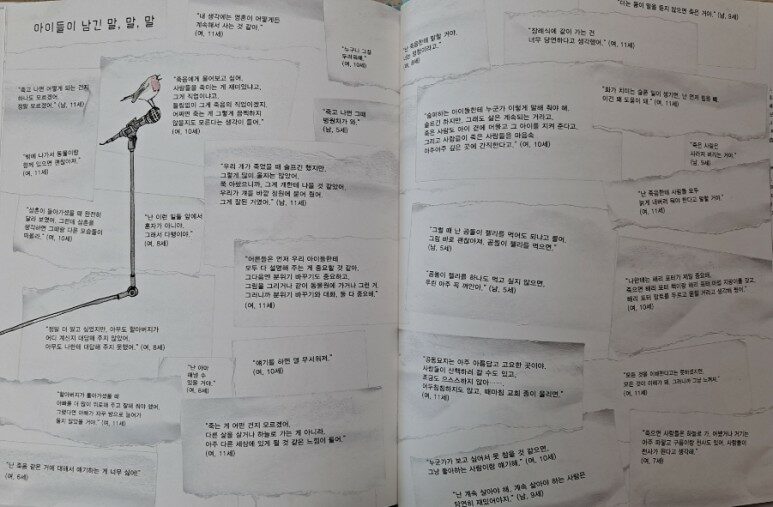 아이들이 남긴 말, 말, 말
"내 생각에는 영혼이 어떻게든
계속해서 사는 것 같아."
(여, 11세)
"누구나 그걸
두려워해."
(여, 10세)
"죽음에게 물어보고 싶어,
사람들을 죽이는 게 재미있냐고,
그게 직업이냐고,
틀림없이 그게 죽음의 직업이겠지,
어쩌면 죽는 게 그렇게 끔찍하지
않을지도 모른다는 생각이 들어."
(여, 10세)
"죽고 나면 어떻게 되는 건지
하나도 모르겠어,
정말 모르겠어." (남, 11세)
"죽고 나면 그때
병원차가 와."
(남, 5세)
"밖에 나가서 동물이랑
함께 있으면 괜찮아져."
(여, 11세)
"우리 개가 죽었을 때 슬프긴 했지만,
그렇게 많이 울지는 않았어.
푹 아팠으니까, 그게 개한테 나을 것 같았어,
우리가 개를 바깥 정원에 묻어 줬어,
그게 잘된 거였어." (남, 11세)
"삼촌이 돌아가셨을 때 완전히
달라 보였어, 그런데 삼촌을
생각하면 그때랑 다른 모습들이
떠올라." (여, 10세)
"난 이런 일들 앞에서
혼자가 아니야,
그래서 다행이야."
(여, 8세)
"어른들은 먼저 우리 아이들한테
모두 다 설명해 주는 게 중요할 것 같아,
그다음엔 분위기 바꾸기도 중요하고,
그림을 그리거나 같이 동물원에 가거나 그런 거,
그러니까 분위기 바꾸기와 대화, 둘 다 중요해."
(여, 11세)
"정말 더 알고 싶었지만, 아무도 할아버지가
어디 계신지 대답해 주지 않았어,
아무도 나한테 대답해 주지 못했어." (여, 8세)
"난 아마
해낼 수
있을 거야."
(여, 6세)
"얘기를 하면 덜 무서워져."
(여, 10세)
"할아버지가 돌아가셨을 때
아빠를 더 많이 위로해 주고 잘해 줘야 했어,
그랬다면 아빠가 자꾸 방으로 들어가
울지 않았을 거야." (여, 11세)
"죽는 게 어떤 건지 모르겠어,
다른 삶을 살거나 하늘로 가는 게 아니라,
아주 다른 세상에 있게 될 것 같은 느낌이 들어."
(여, 11세)
"난 죽음 같은 거에 대해서 얘기하는 게 너무 싫어!"
(여, 6세)
않으면 죽은 거야." (남, 8세)
"난 죽음한테 말할 거야,
"장례식에 같이 가는 건
너무 당연하다고 생각했어." (여, 11세)
"화가 치미는 슬픈 일이 생기면, 난 먼저 힘을 빼,
이건 꽤 도움이 돼." (여, 11세)
"슬퍼하는 아이들한테 누군가 이렇게 말해 줘야 해,
슬프긴 하지만, 그래도 삶은 계속되는 거라고,
죽은 사람도 아이 곁에 머물고 그 아이를 지켜 준다고,
그리고 사람들이 죽은 사람들은 마음속
아주아주 깊은 곳에 간직한다고." (여, 10세)
"죽은 사람은
사라져 버리는 거야."
(남, 5세)
"난 죽음한테 사람들 모두
늙게 내버려 둬야 한다고 말할 거야."
(여, 11세)
"그럴 때 난 곰돌이 젤리를 먹어도 되냐고 물어,
그럼 바로 괜찮아져, 곰돌이 젤리를 먹으면."
(남, 5세)
"곰돌이 젤리를 하나도 먹고 싶지 않으면,
우린 아주 꼭 껴안아." (남, 5세)
"나한테는 해리 포터가 제일 중요해,
(여, 10세)
"공동묘지는 아주 아름답고 고요한 곳이야,
사람들이 산책하러 갈 수도 있고,
조금도 으스스하지 않아……
어두침침하지도 않고, 때마침 교회 종이 울리면."
(여, 11세)
"모든 것을 이해한다고는 못하겠지만,
모든 것이 이해가 돼, 그러니까 그냥 느껴져."
(여, 11세)
"누군가가 보고 싶어서 못 참을 것 같으면,
그냥 좋아하는 사람이랑 얘기해." (여, 10세)
"죽으면 사람들은 하늘로 가, 어쨌거나 거기는
아주 파랗고 구름이랑 천사도 있어, 사람들이
천사가 된다고 생각해."
(여, 7세)
"난 계속 살아야 해, 계속 살아야 하는 사람은
당연히 재밌어야지." (남, 9세)